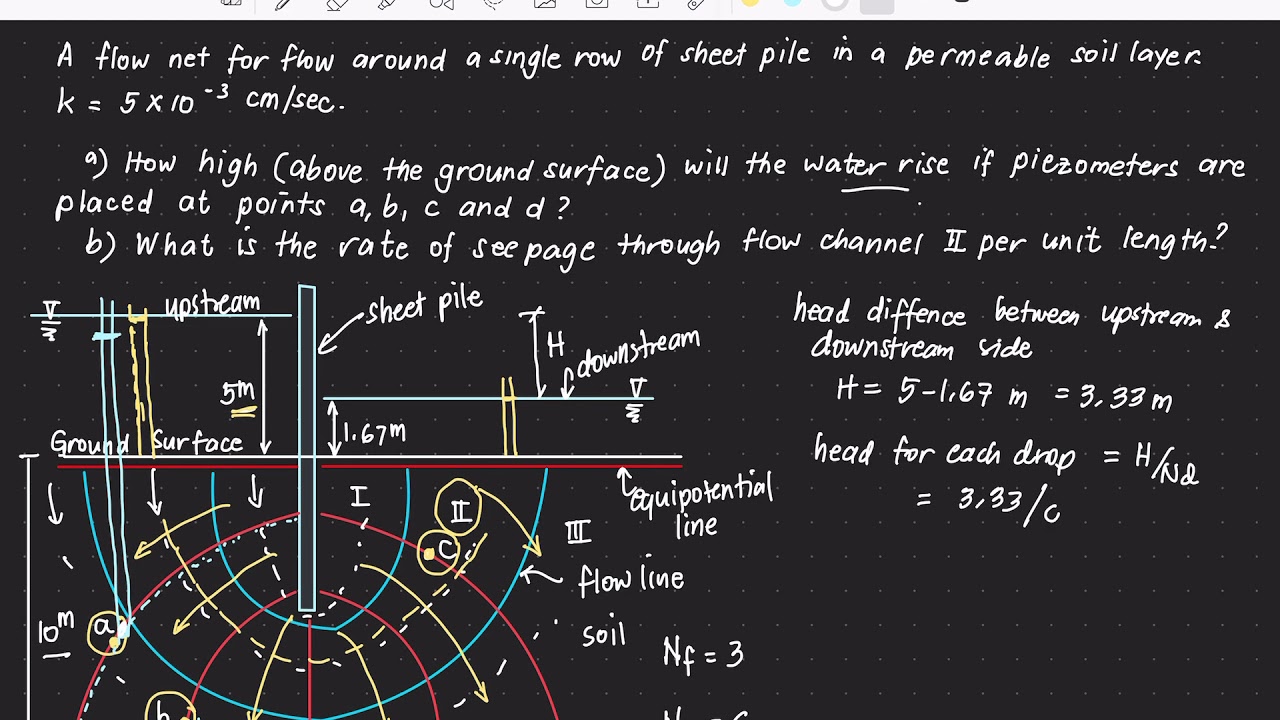 A flow net for flow around a single row of sheet pile in a permeable soil layer.
k = 5 × 10⁻³ cm/sec.
a) How high (above the ground surface) will the water rise if piezometers are
placed at points a, b, c and d?
b) What is the rate of seepage through flow channel II per unit length?
upstream
sheet pile
H
downstream
5m
1.67m
Ground Surface
I
II
III
c
equipotential
line
flow line
soil
a
10m
b
Nf = 3
head diffence between upstream &
downstream side
H = 5-1.67 m = 3.33 m
head for each drop = H/Nd
= 3.33/